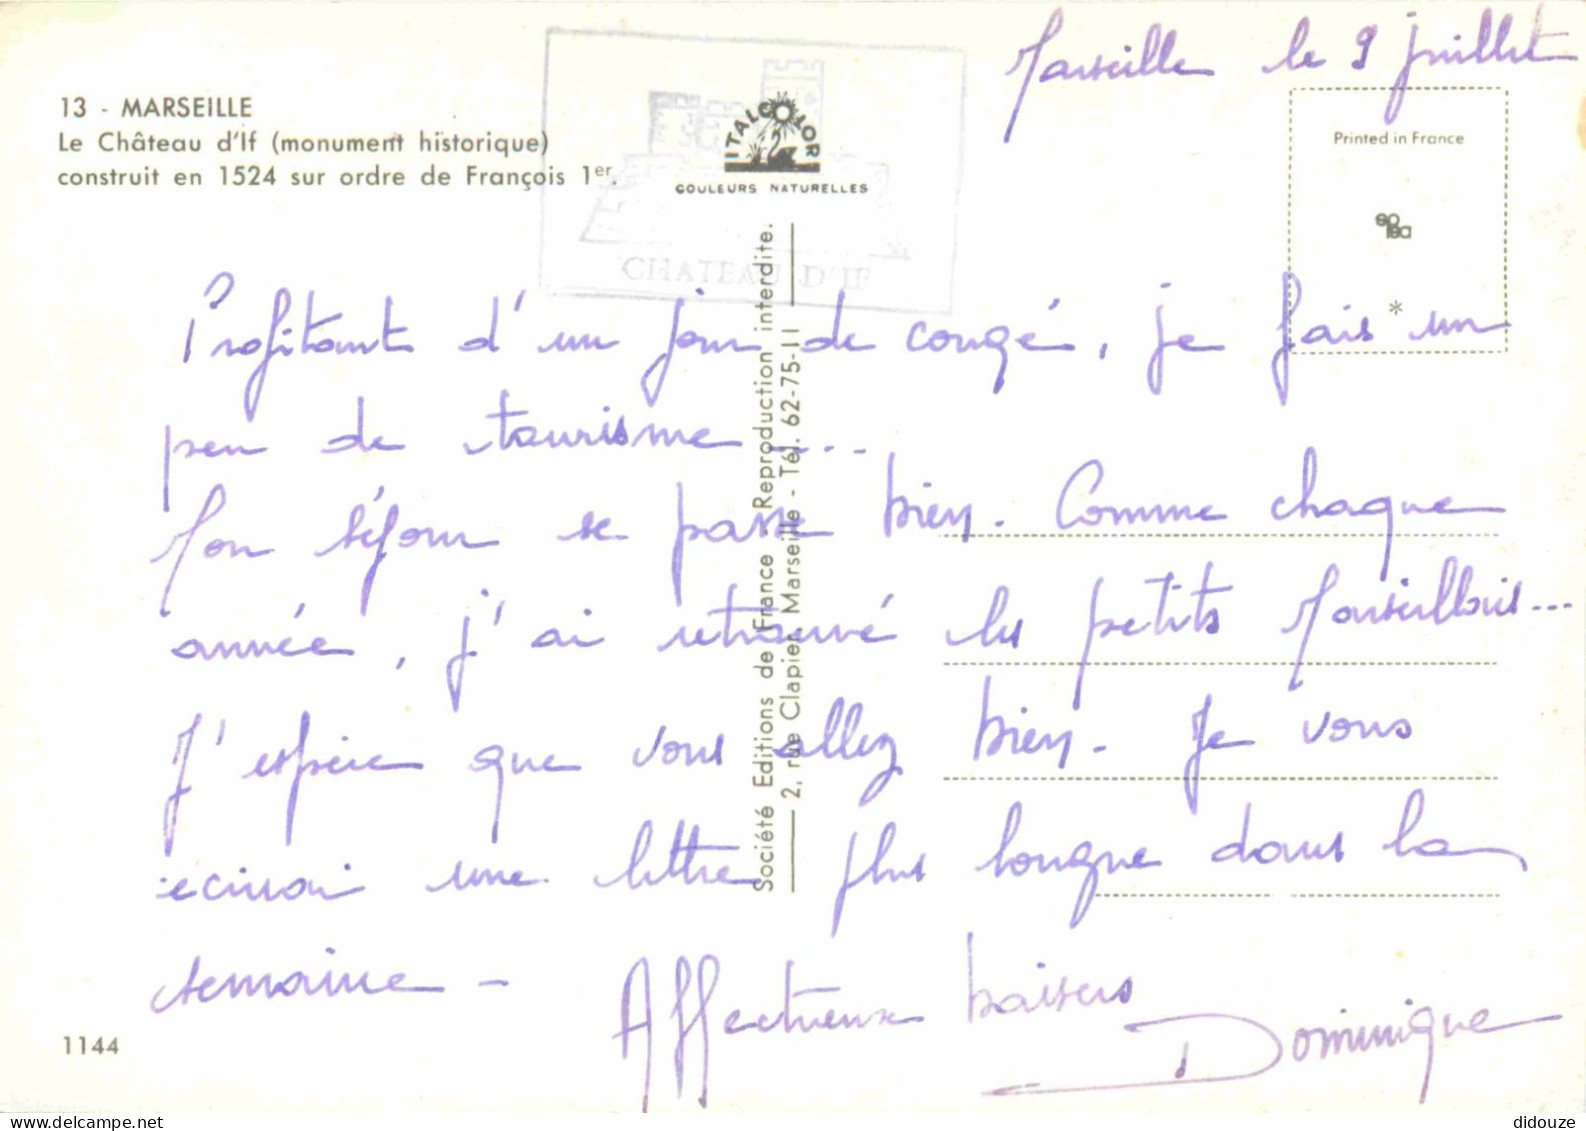 Marseille le 9 juillet
13 - MARSEILLE
Le Château d'If (monument historique)
construit en 1524 sur ordre de François 1er.
ITALCOLOR
COULEURS NATURELLES
CHATEAU D'IF
Printed in France
*
Société Editions de France Reproduction interdite.
2, rue Clapier, Marseille - Tél. 62-75-11
Profitant d'un jour de congé, je fais un
peu de tourisme ....
Mon séjour se passe bien. Comme chaque
année, j'ai retrouvé les petits Marseillais...
J'espère que vous allez bien. Je vous
écirrai une lettre plus longue dans la
semaine -
Affectueux baisers
Dominique
1144
didouze